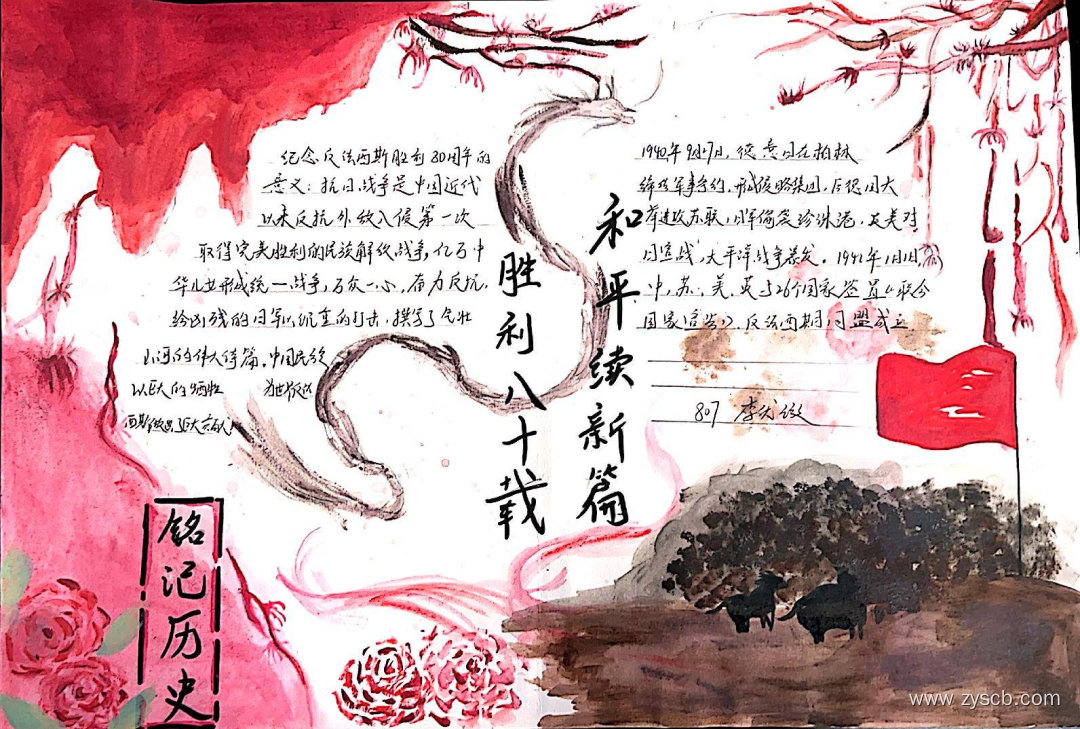 纪念反法西斯胜利80周年的
意义：抗日战争是中国近代
以来反抗外敌入侵第一次
取得完美胜利的民族解放战争，亿万中
华儿女形成统一战争，万众一心，奋力反抗，
给凶残的日军以沉重的打击，撰写了气壮
山河的伟大诗篇。中国民族
以巨大的牺牲
西斯做出了巨大贡献
胜利八十载
和平续新篇
1940年9月27日，德意日在柏林
缔结军事条约，形成侵略集团，后德国大
举进攻苏联，日军偷袭珍珠港，及美对
日宣战，太平洋战争暴发。1942年1月1日，
中、苏、美、英等26个国家签置《联合
国家宣言》，反法西斯同盟成立
807 李
铭记历史
www.zyscb.com